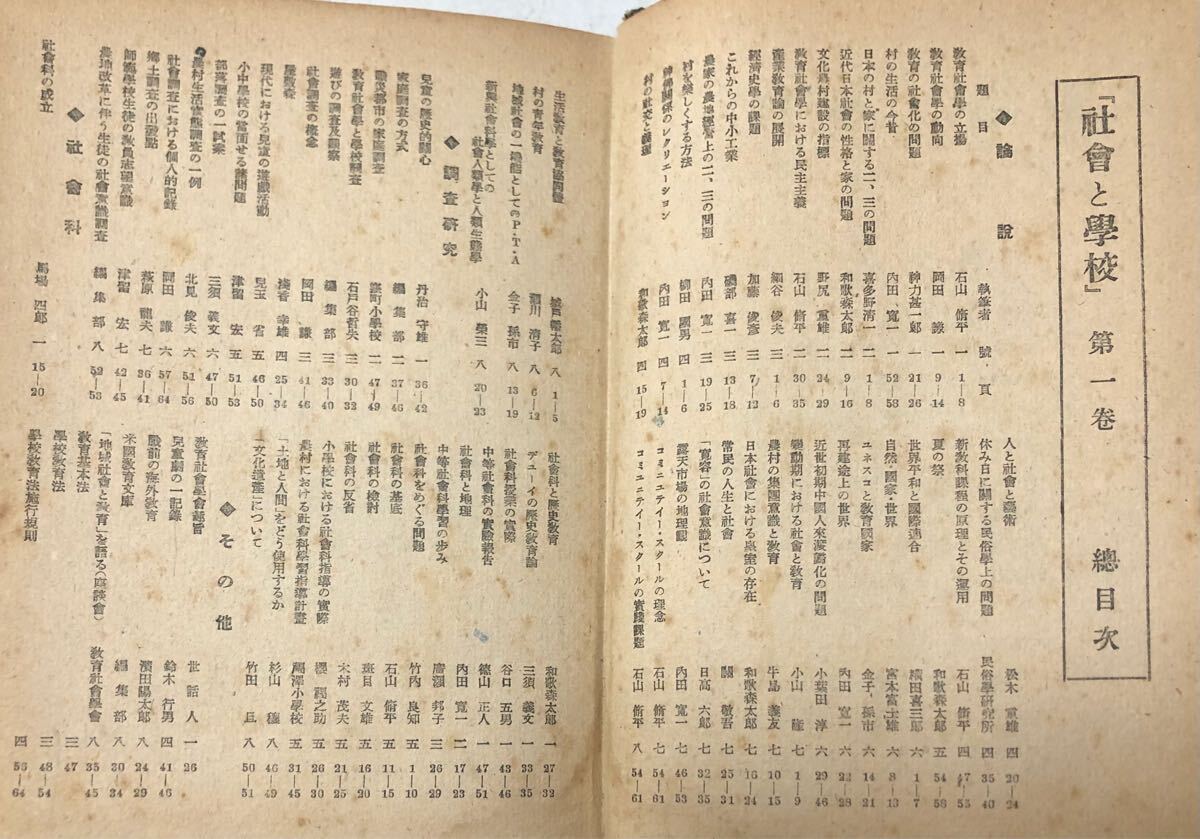 『社會と學校』第一卷 總目次
論說
題目 執筆者 號 頁
教育社會學の立場 石山脩平 一 1—8
教育社會學の動向 岡田謙 一 9—14
教育の社會化の問題 神力甚一郎 一 21—26
村の生活の今昔 內田寬一 一 52—58
日本の村と家に關する二、三の問題 喜多野淸一 二 1—8
近代日本社會の性格と家の問題 和歌森太郎 二 9—16
文化農村建設の指標 野尻重雄 二 24—29
教育社會學における民主主義 石山脩平 二 30—35
產業教育論の展開 細谷俊夫 三 1—6
經濟史學の課題 加藤俊彥 三 7—12
これからの中小工業 磯部喜一 三 13—18
農家の農地經營上の二、三の問題 內田寬一 三 19—25
村を樂しくする方法 柳田國男 四 1—6
神事關係のレクリエーション 內田寬一 四 7—14
村の社交と義理 和歌森太郎 四 15—19
人と社會と藝術 松木重雄 四 20—24
休み日に關する民俗學上の問題 民俗學硏究所 四 35—40
新教科課程の原理とその運用 石山脩平 四 47—55
夏の祭 和歌森太郎 五 54—58
世界平和と國際連合 橫田喜三郎 六 1—7
自然・國家・世界 宮本富士雄 六 8—13
ユネスコと教育國家 金子孫市 六 14—21
再建途上の世界 內田寬一 六 22—28
近世初期中國人來漢諸化の問題 小葉田淳 六 29—46
變動期における社會と教育 小山隆 七 1—9
農村の集團意識と教育 牛島義友 七 10—15
日本社會における皇室の存在 和歌森太郎 七 16—24
常民の人生と社會 關敬吾 七 25—31
「寬容」の社會意識について 日高六郎 七 32—35
露天市場の地理觀 內田寬一 七 46—53
コミュニティ・スクールの理念 石山脩平 七 54—61
コミュニティー・スクールの實踐課題 石山脩平 八 54—61
生活教育と教育協同體 八 1—5
村の靑年教育 淸子 八 6—12
地域社會の一機能としてのP・T・A 金子孫市 八 13—19
新興社會科學としての社會人類學と人類生態學 小山榮三 八 20—23
調査硏究
兒童の歷史的關心 丹治守雄 一 36—42
家庭調査の方式 編集部 二 37—46
戰災都市の家庭調査 小學校 二 47—49
教育社會學と學校調査 石戶谷哲夫 三 30—32
遊びの調査及觀察 編集部 三 33—40
社會調査の概念 岡田謙 三 41—46
淺香幸雄 四 25—34
現代における兒童の遊戲活動 兒玉省 五 46—50
小中學校の當面せる諸問題 津留宏 五 51—53
部落調査の一試案 三須義文 六 47—50
農村生活實態調査の一例 北見俊夫 六 51—56
社會調査における個人的記錄 岡田謙 六 57—64
鄕土調査の出發點 萩原龍夫 七 36—41
師範學校生徒の教員志望意識 津留宏 七 42—45
農地改革に伴う生徒の社會意識調査 編集部 八 52—53
社會科
社會科の成立 馬場四郎 一 15—20
社會科と歷史教育 和歌森太郎 一 27—32
デューイの歷史教育論 三須義文 一 33—35
社會科授業の實際 谷口五男 一 46
中等社會科の實驗報告 德山正人 一 47—51
社會科と地理 內田寬一 二 17—23
中等社會科學習の步み 廣瀨邦子 三 26—29
社會科をめぐる問題 竹內良知 五 1—10
社會科の基底 石山脩平 五 11—15
社會科の檢討 班目文雄 五 16—20
社會科の反省 木村茂夫 五 21—25
小學校における社會科指導の實際 櫻鶴之助 五 26—30
農村における社會科學習指導計畫 高澤小學校 五 31—45
「土地と人間」をどう使用するか 杉山 八 46—49
「文化遺產」について 竹田旦 八 50—51
その他
教育社會學會趣旨 世話人 一 26
兒童劇の一記錄 鈴木行男 四 41—46
戰前の海外教育 濱田陽太郎 八 24—29
米國教育文庫 編集部 八 30—34
「地域社會と教育」を語る（座談會） 教育社會學會 八 35—45
教育基本法 三 47
學校教育法 三 48—54
學校教育法施行規則 四 56—64